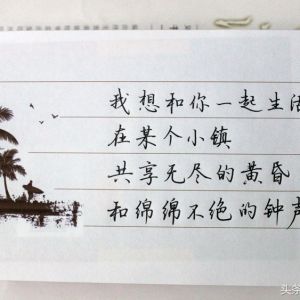 我想和你一起生活
在某个小镇
共享无尽的黄昏
和绵绵不绝的钟声
头条